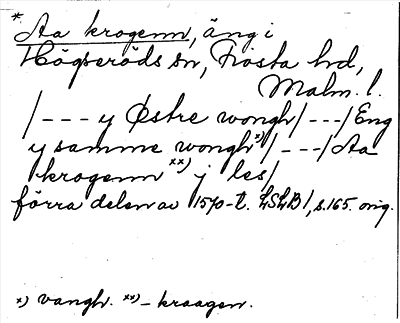 * Aa krogenn, äng i
Högseröds sn, Frosta hd,
Malm. l.
/--- y Østre wongh/---/Eng
y samme wongh x)/---/Aa
krogenn xx) j les/
förra delen av 1570-t. LSLB 1, s. 165. orig.
x) vangh. xx) -kraagen.